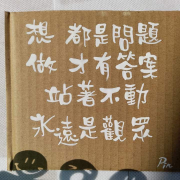 想 都是問題
做 才有答案
站著不動
永遠是觀眾